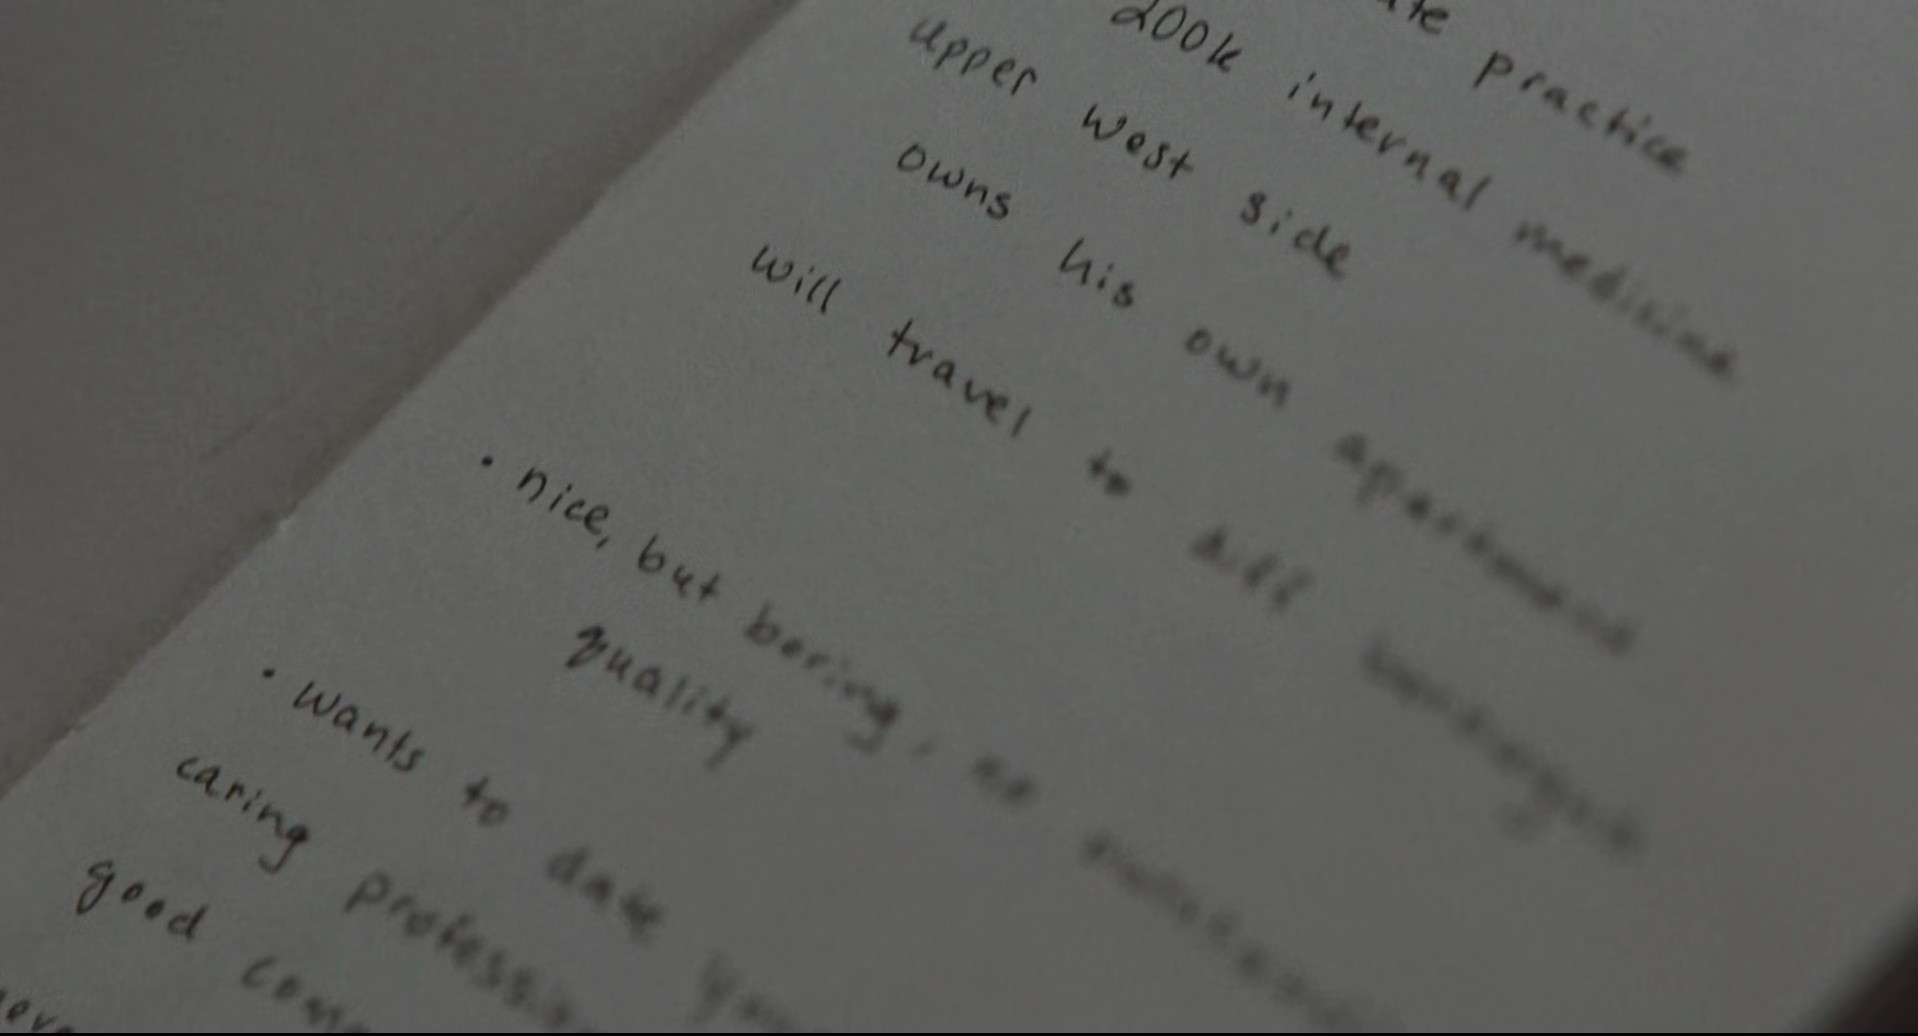 practice
200k internal medicine
upper west side
owns his own apartment
will travel to diff
· nice, but boring, no
quality
· wants to date
caring
good